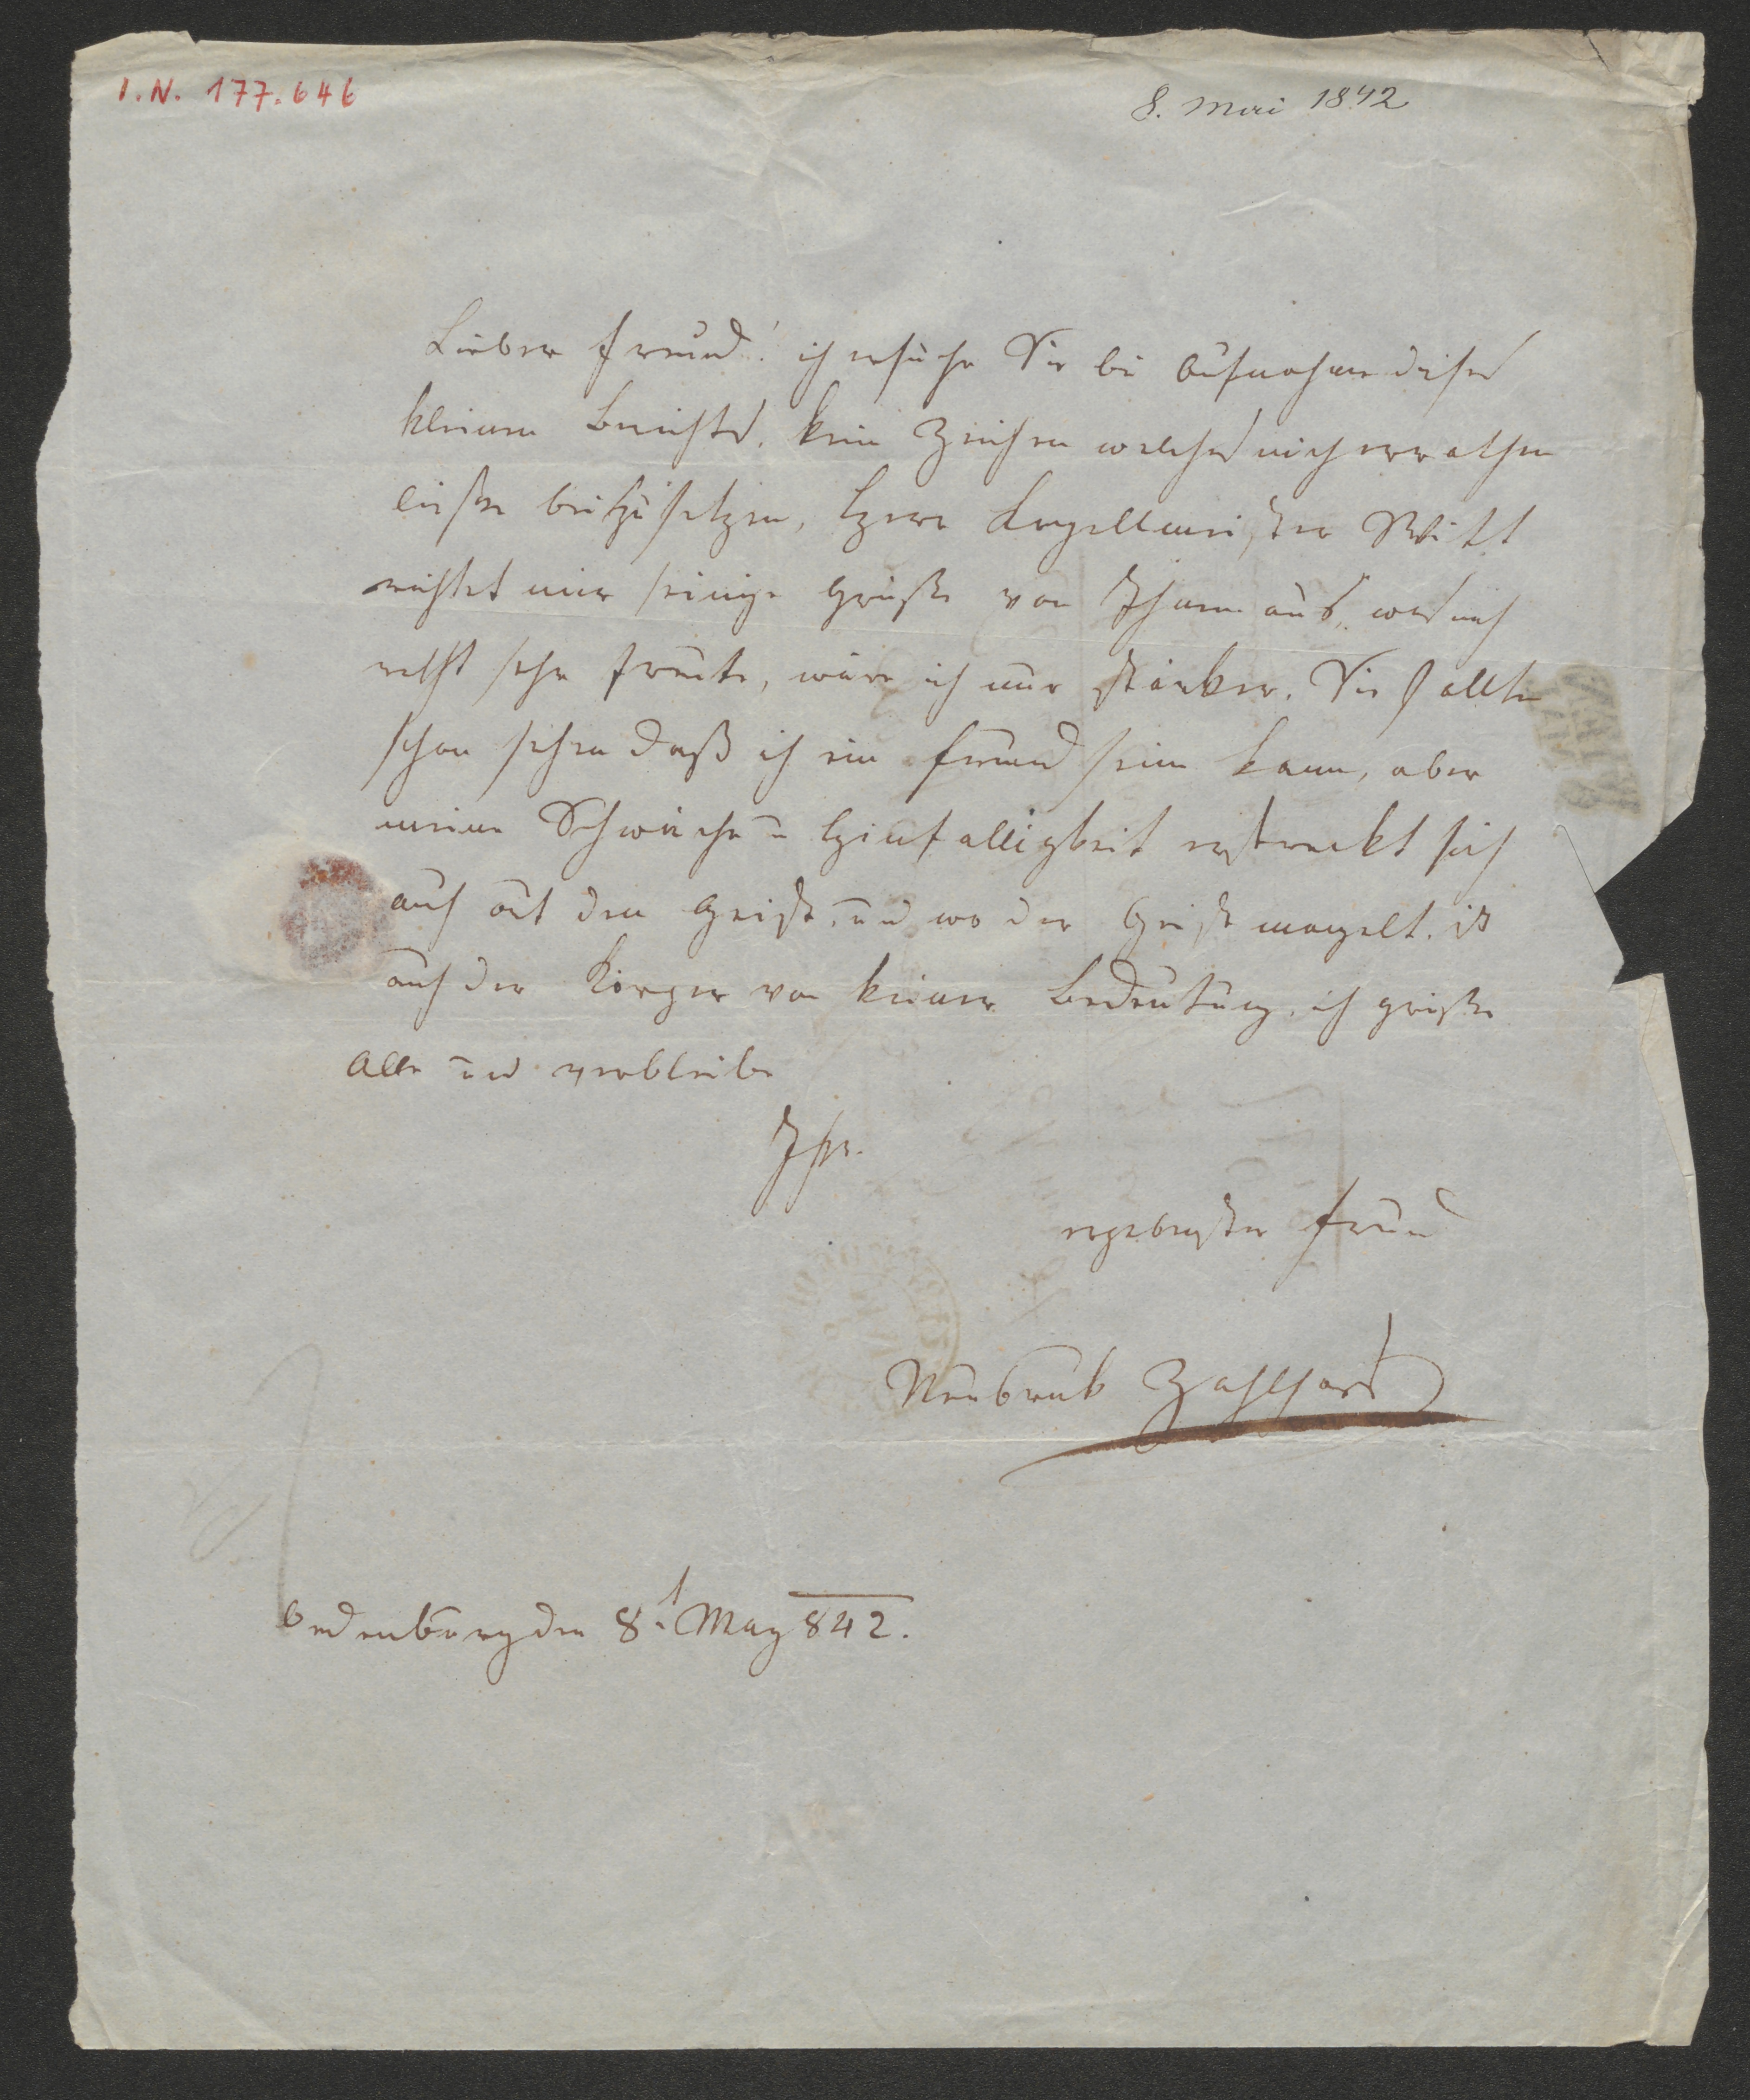 I.N. 177.646
8. Mai 1842
Lieber Freund! ich ersuche Sie bei Aufnahme dieses
kleinen Berichts. kein Zeichen welches mich errathen
ließe beitzusetzen, Herr Kapellmeister Witt
richtet mir einige Grüße von Ihnen aus, was mich
recht sehr freute, wäre ich nur stärker. Sie sollten
schon sehen daß ich ein Freund sein kann, aber
meine Schwäche u Hinfälligkeit erstreckt sich
auch auf den Geist, und wo der Geist mangelt. ist
auch der Körper von keiner Bedeutung, ich grüße
Alle und verbleibe
Ihr.
ergebenster Freund
Neubruk Zahlhas
Oedenburg den 8t. May 842.